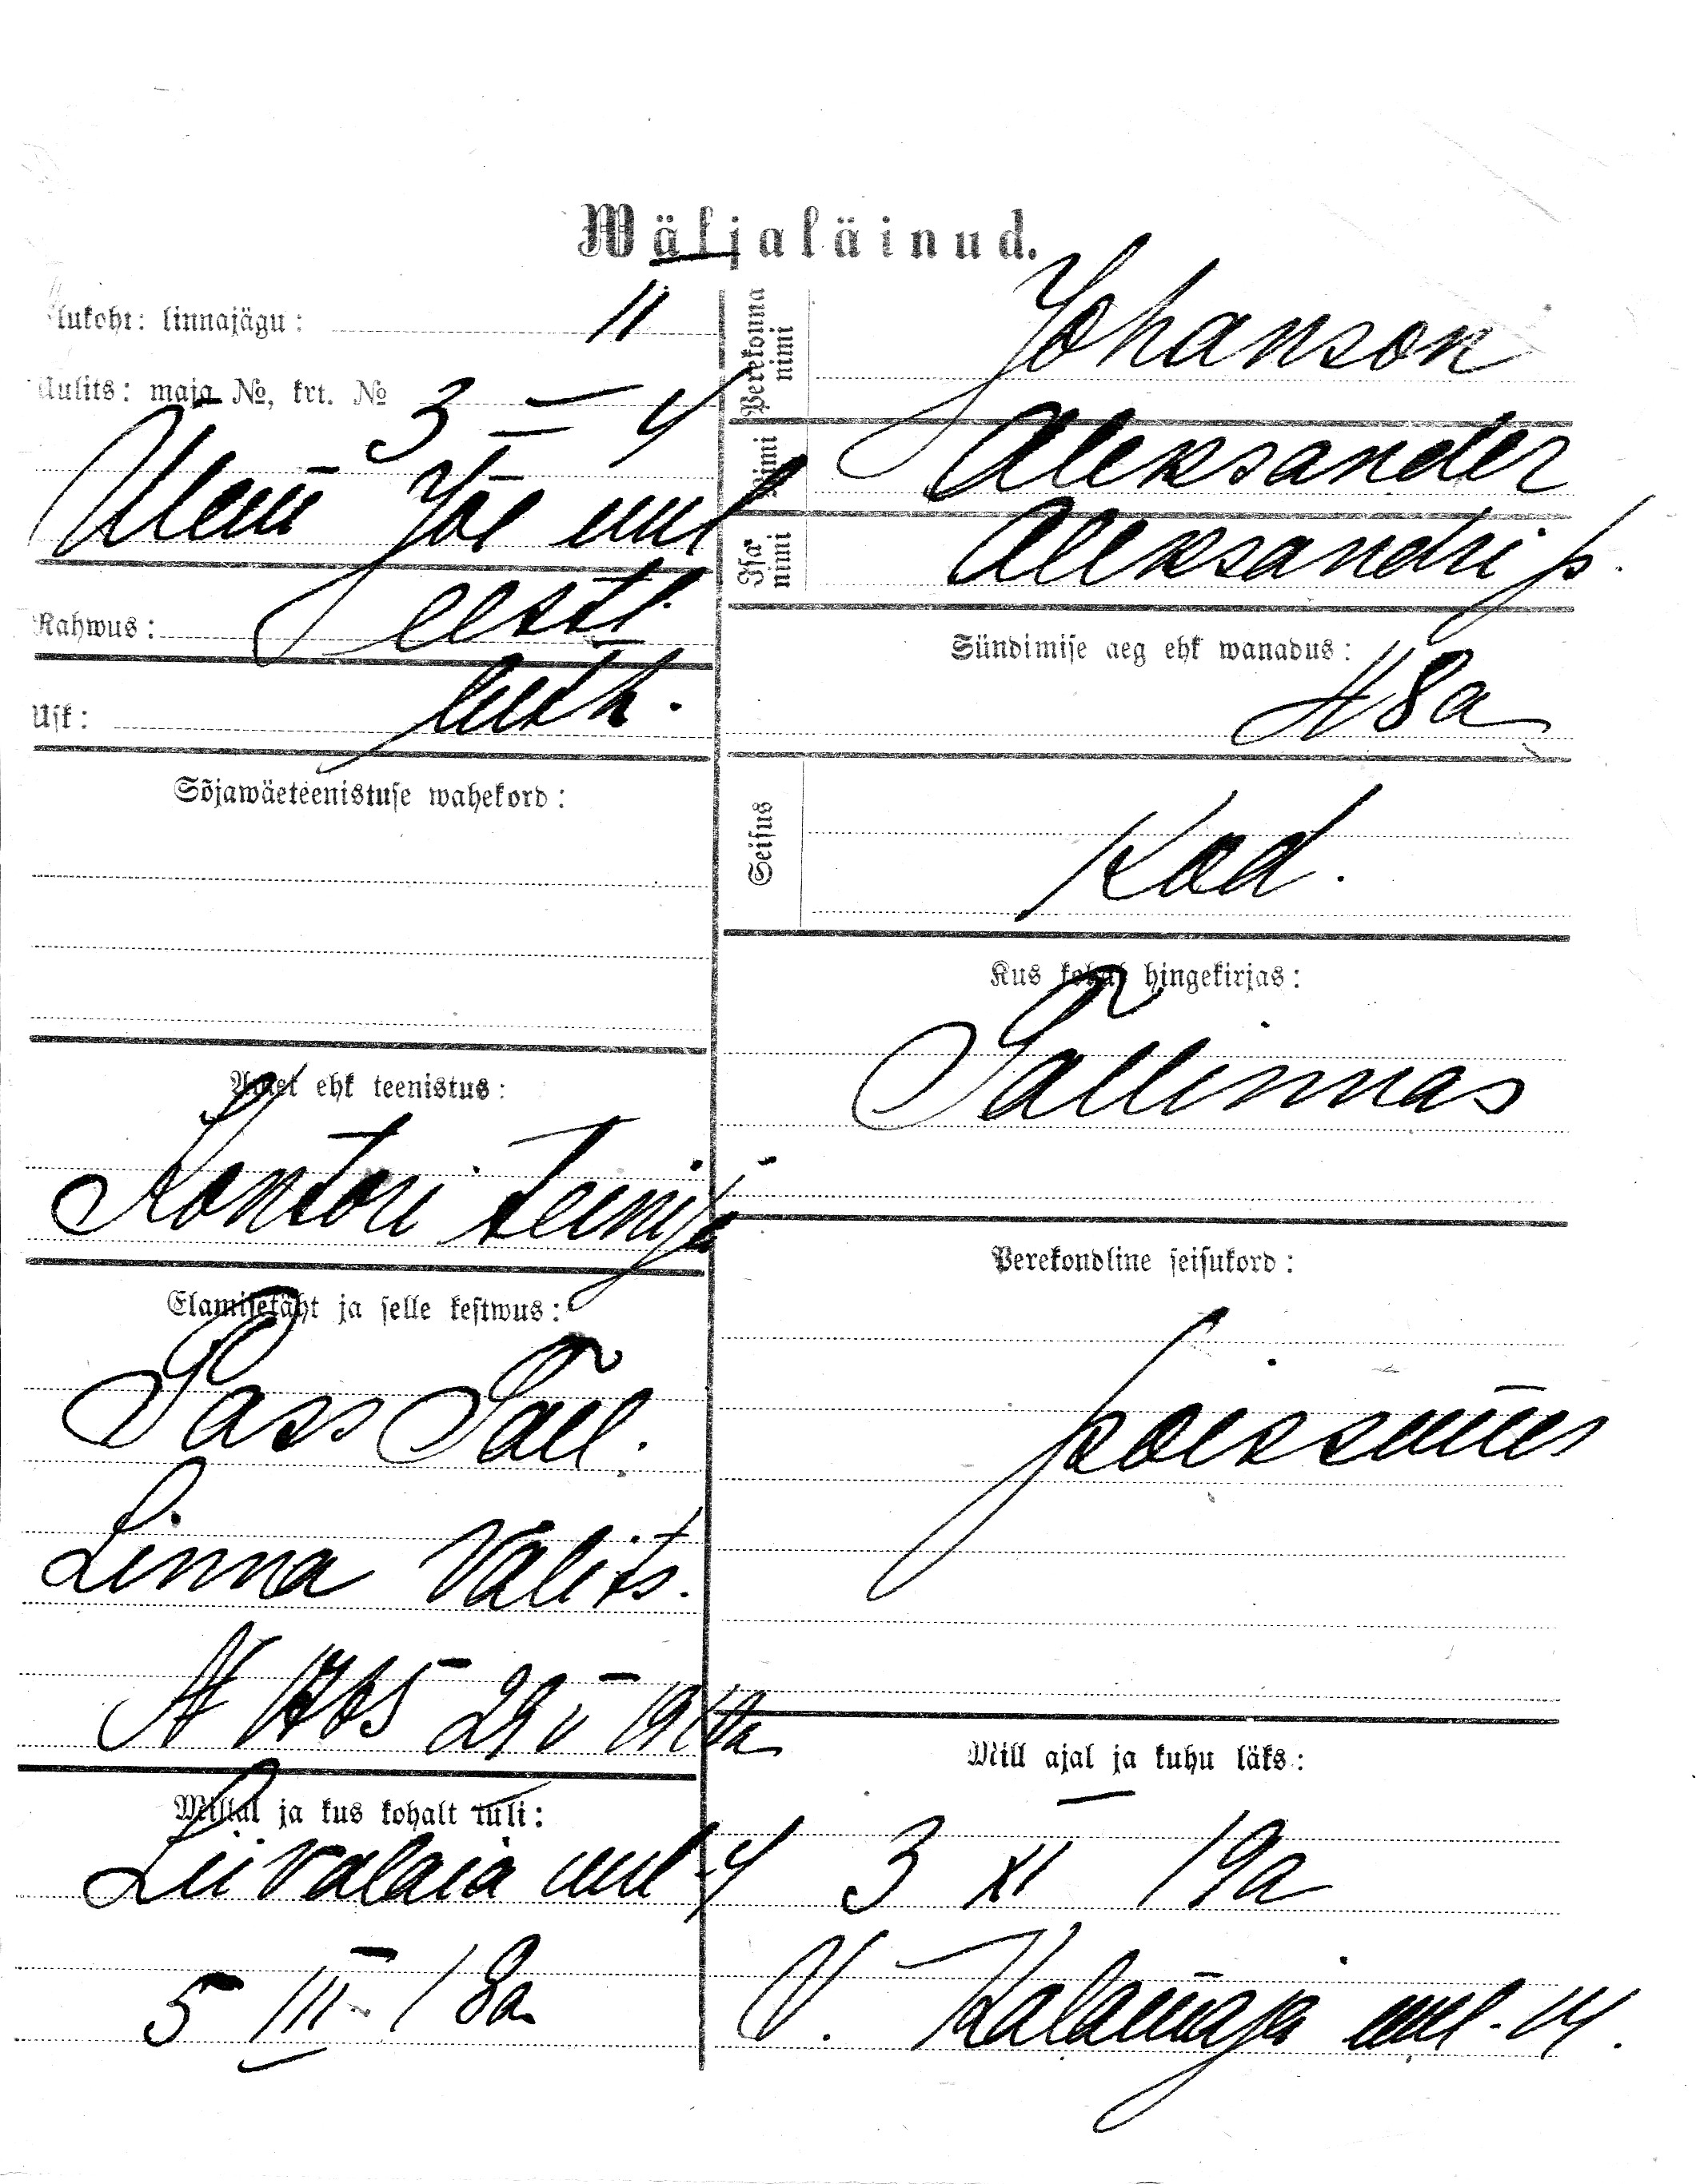 Wäljaläinud.
Elukoht: linnajägu: II
Uulits: maja №, krt. № 3 — 4
Jõe uul
Rahwus: eesti
Usk: luth.
Sõjawäeteenistuse wahekord:
Amet ehk teenistus:
Kontori teenija
Elamisetäht ja selle kestwus:
Pass Tall.
Linna Valits.
29 V 19
Millal ja kus kohalt tuli:
Liivalaia uul 4
5 III 18a.
Perekonna nimi Johanson
Nimi Aleksander
Isa nimi Aleksandri p.
Sündimise aeg ehk wanadus:
48a
Seisus Kod.
Kus kohal hingekirjas:
Tallinnas
Perekondline seisukord:
poissmees
Mill ajal ja kuhu läks:
3 XI 19a
V. Kalamaja uul. 14.